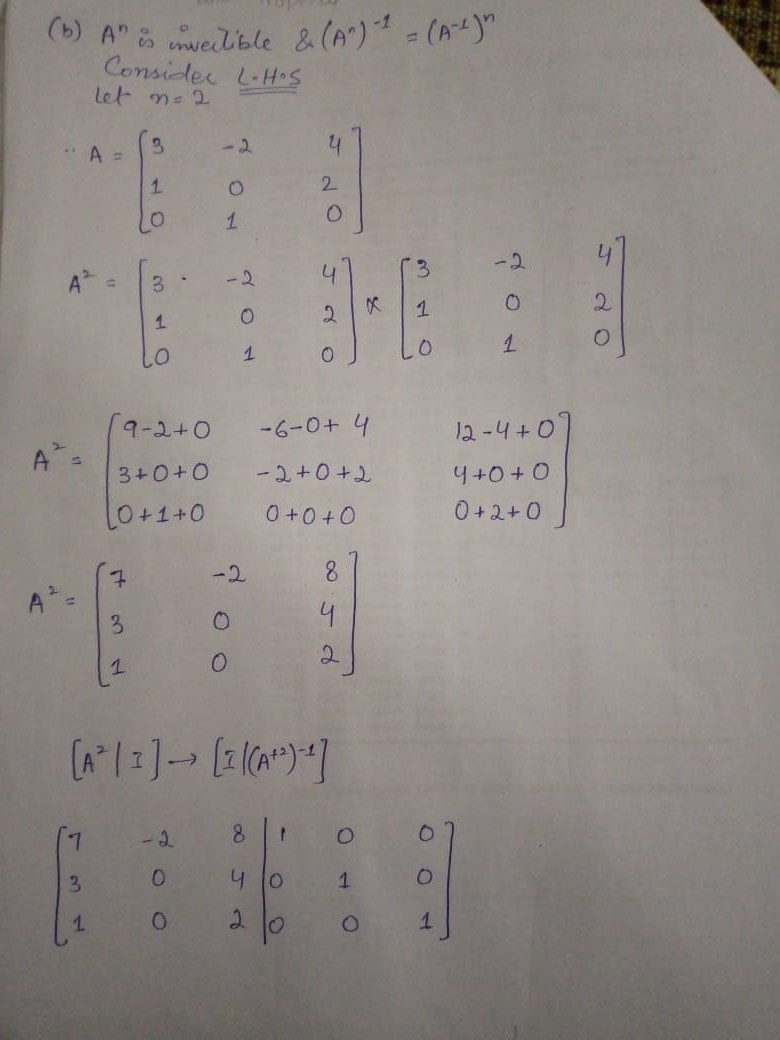 (b) Aⁿ is invertible & (Aⁿ)⁻¹ = (A⁻¹)ⁿ
Consider L.H.S
Let n = 2
∵ A = [3 -2 4
1 0 2
0 1 0]
A² = [3 -2 4 × [3 -2 4
1 0 2 1 0 2
0 1 0] 0 1 0]
A² = [9-2+0 -6-0+4 12-4+0
3+0+0 -2+0+2 4+0+0
0+1+0 0+0+0 0+2+0]
A² = [7 -2 8
3 0 4
1 0 2]
[A² | I] → [I | (A⁺²)⁻¹]
[7 -2 8 | 1 0 0
3 0 4 | 0 1 0
1 0 2 | 0 0 1]